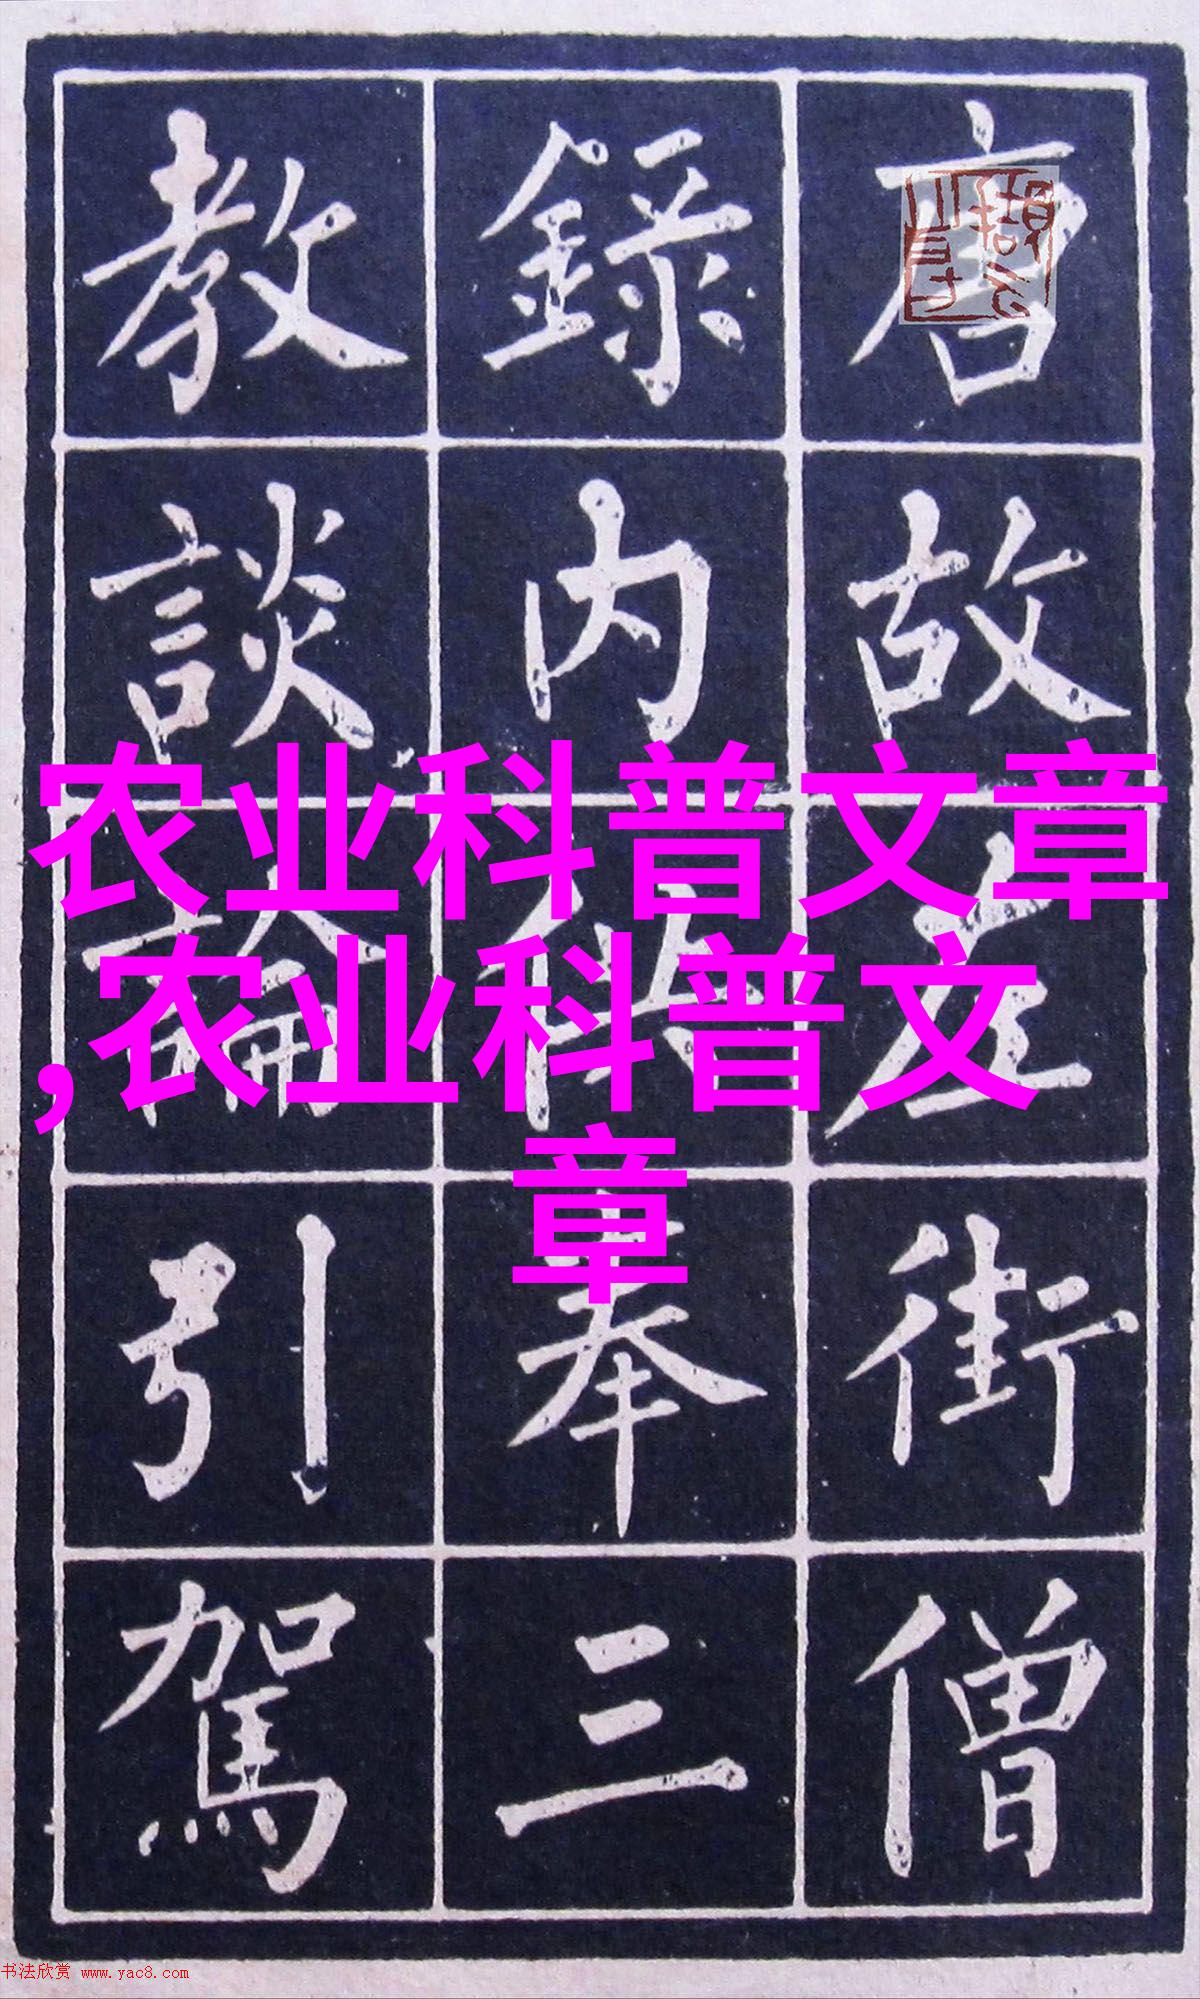 唐故左街僧
錄內供奉三
教談論引駕
农业科普文章
,农业科普文
章
书法欣赏 www.yac8.com